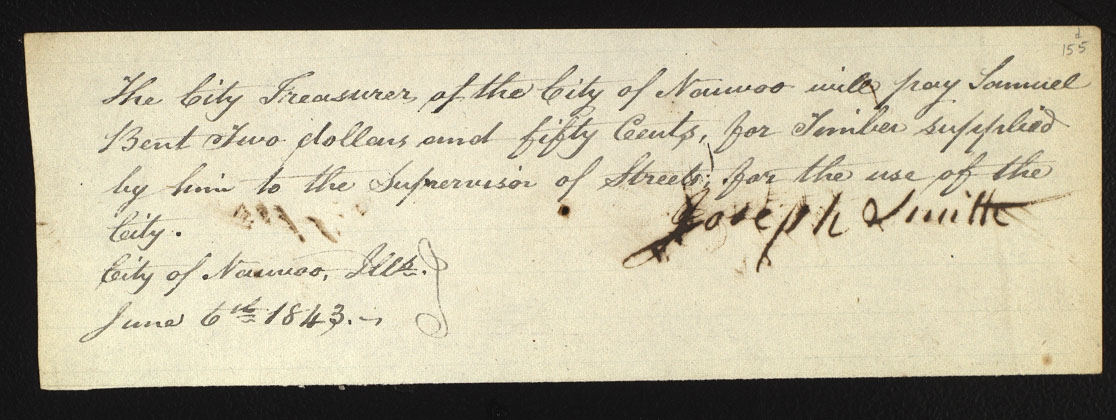 155
d
The City Treasurer, of the City of Nauvoo will pay Samuel
Bent Two dollars and fifty Cents, for Timber supplied
by him to the Supervisor of Streets; for the use of the
City.
Joseph Smith
City of Nauvoo, Ills.
June 6th 1843.